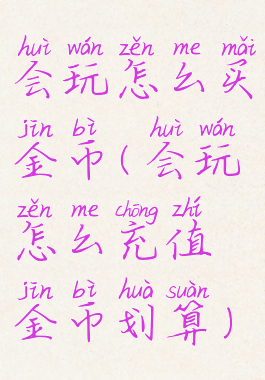 huì wán zěn me mǎi
会玩怎么买
jīn bì huì wán
金币(会玩
zěn me chōng zhí
怎么充值
jīn bì huà suàn
金币划算)